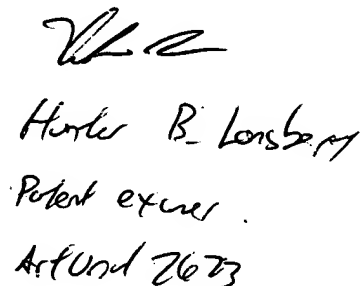 Hunter B. Lonsberry
Patent examiner
Art Unit 2623